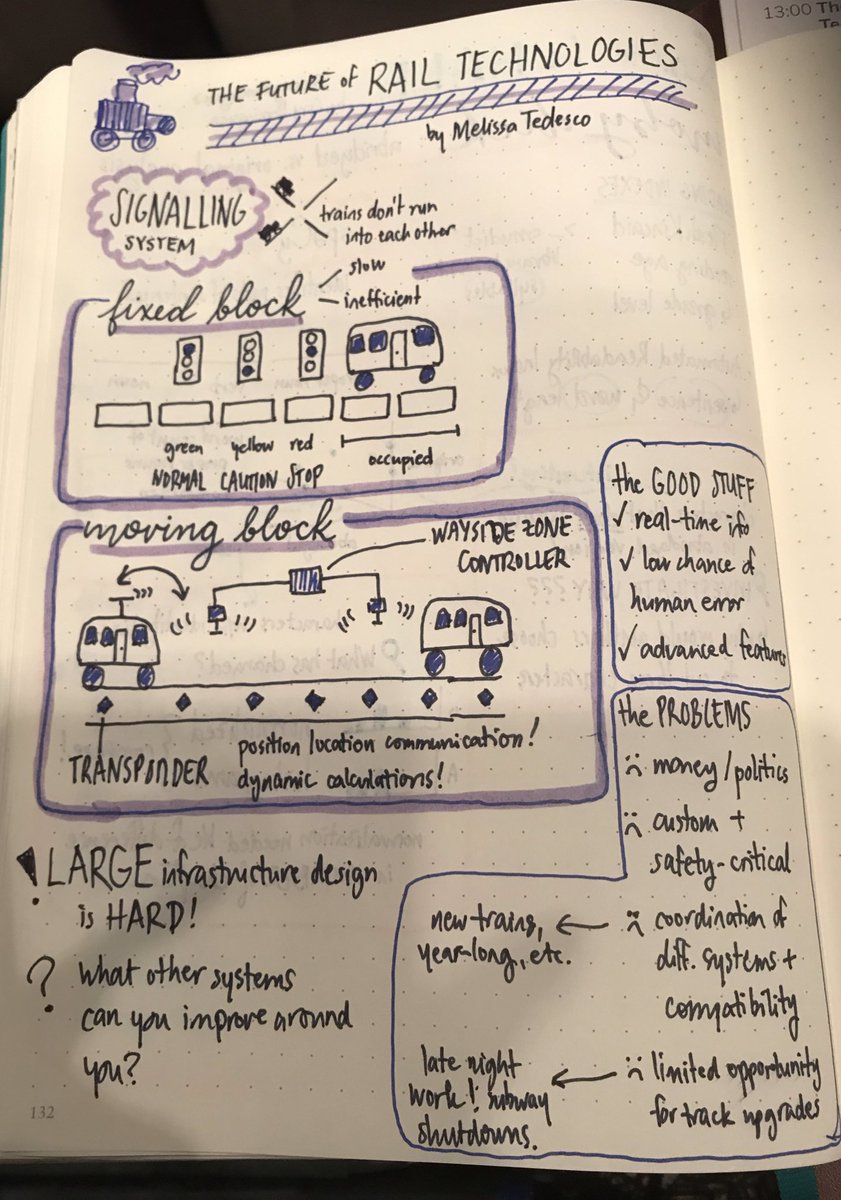 13:00 Th
Te
THE FUTURE of RAIL TECHNOLOGIES
by Melissa Tedesco
SIGNALLING
SYSTEM
trains don't run
into each other
fixed block
slow
inefficient
green yellow red
NORMAL CAUTION STOP
occupied
moving block
WAYSIDE ZONE
CONTROLLER
TRANSPONDER
position location communication!
dynamic calculations!
the GOOD STUFF
✓ real-time info
✓ low chance of
human error
✓ advanced features
the PROBLEMS
money/politics
custom +
safety-critical
coordination of
diff. systems +
compatibility
new trains,
year-long, etc.
limited opportunity
for track upgrades
late night
work! subway
shutdowns.
! LARGE infrastructure design
is HARD!
? what other systems
can you improve around
you?
132